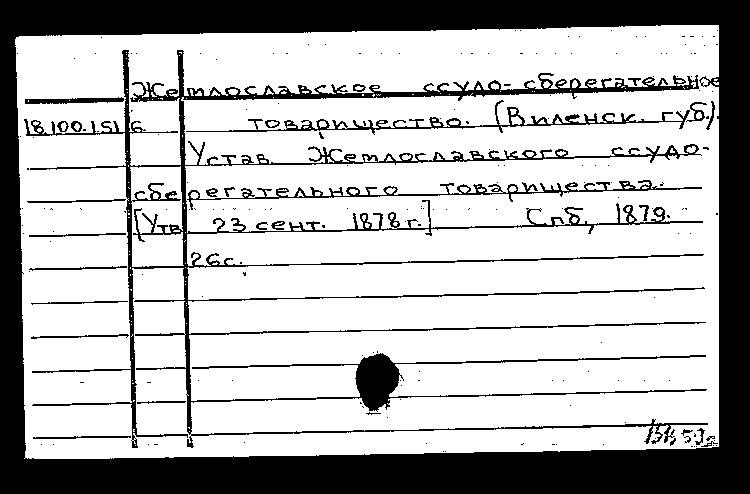 Жетлославское ссудо-сберегательное
18.100.151 б. товарищество. (Виленск. губ.).
Устав Жетлославского ссудо-
сберегательного товарищества.
[Утв. 23 сент. 1878 г.] Спб., 1879.
26с.